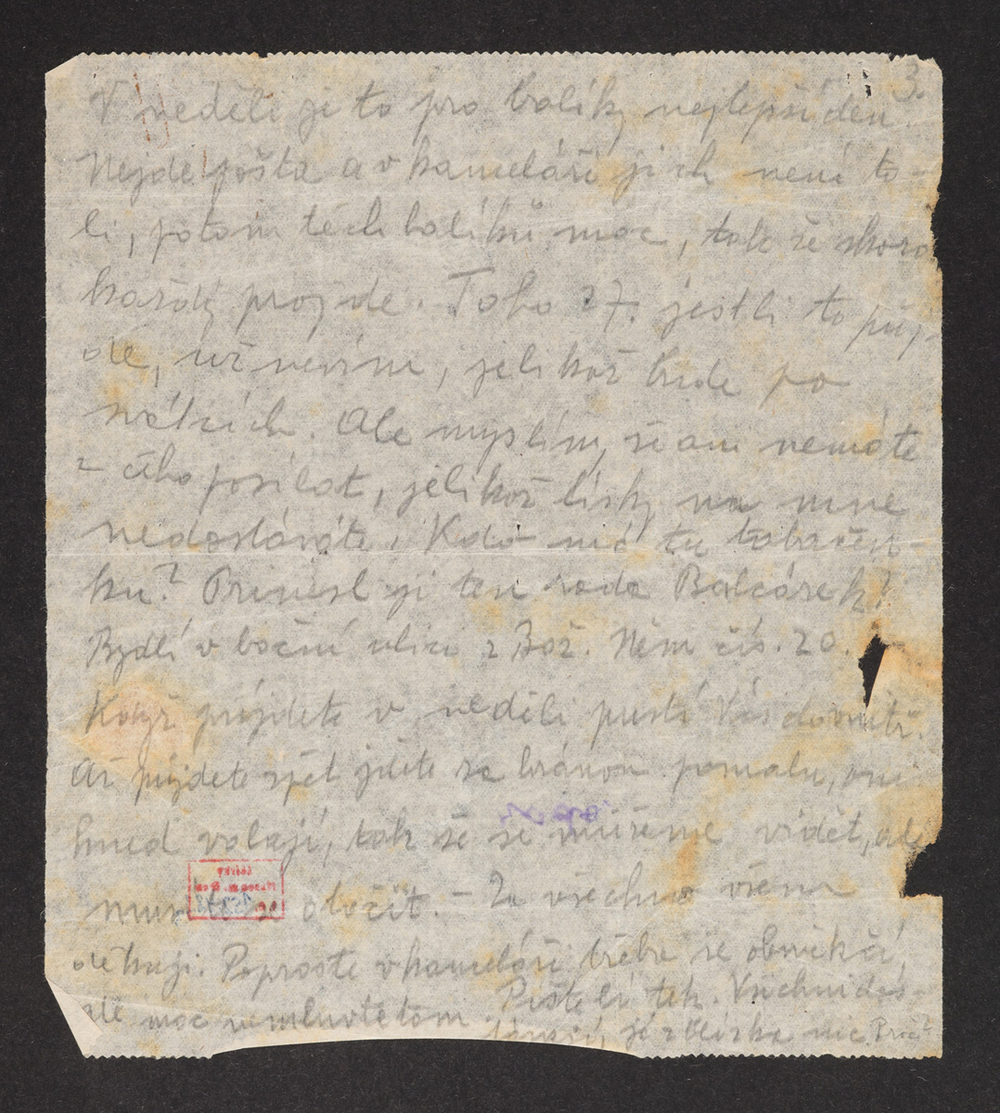 3.
V neděli je to pro balíky nejlepší den.
Nejde pošta a v kanceláři jich není to-
li, potom těch balíků moc, tak že skoro
každý projde. Toho 27. jestli to půj-
de, už nevím, jelikož bude po
svátcích. Ale myslím, že ani nemáte
z čeho posílat, jelikož lísky na mne
nedostáváte. Kdo má tu tabačen-
ku? Prinesl ji ten rada Balcárek?
Bydlí v boční ulici z Bož. Něm čís. 20.
Když prijdete v neděli pustí Vás dovnitř.
Až půjdete zpět jděte za bránou pomalu, oni
hned volají, tak že se můžeme vidět, ale
se otočit. – Za všechno všem
děkuji. Poproste v kanceláři třeba se obměkčí,
ale moc nemluvte o tom. Píšete li tak. Všichni dos-
já z blízka nic. Proč?